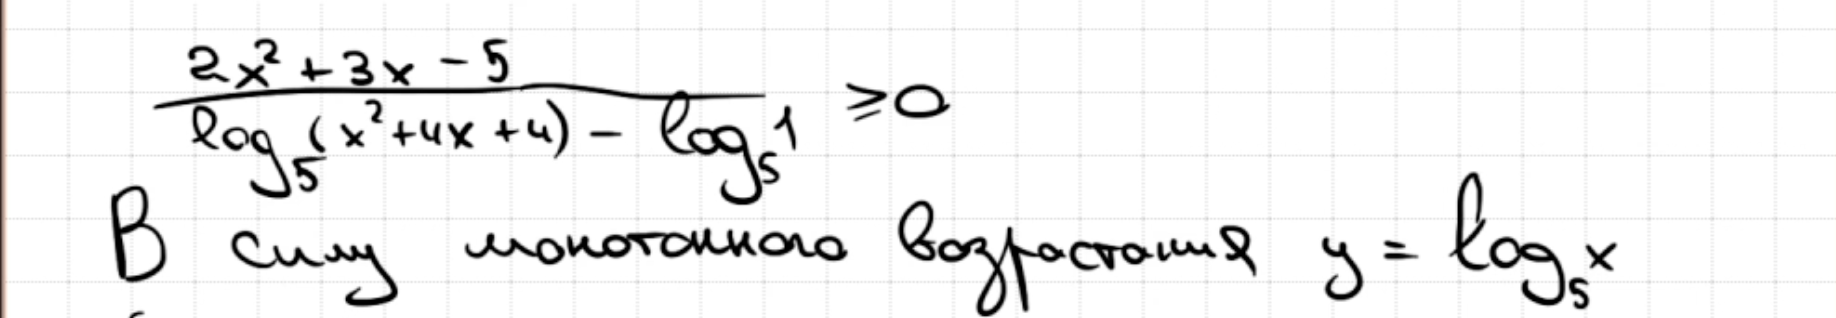 2x² + 3x - 5
log₅(x² + 4x + 4) - log₅1 ≥ 0
В силу монотонного возрастания y = log₅x